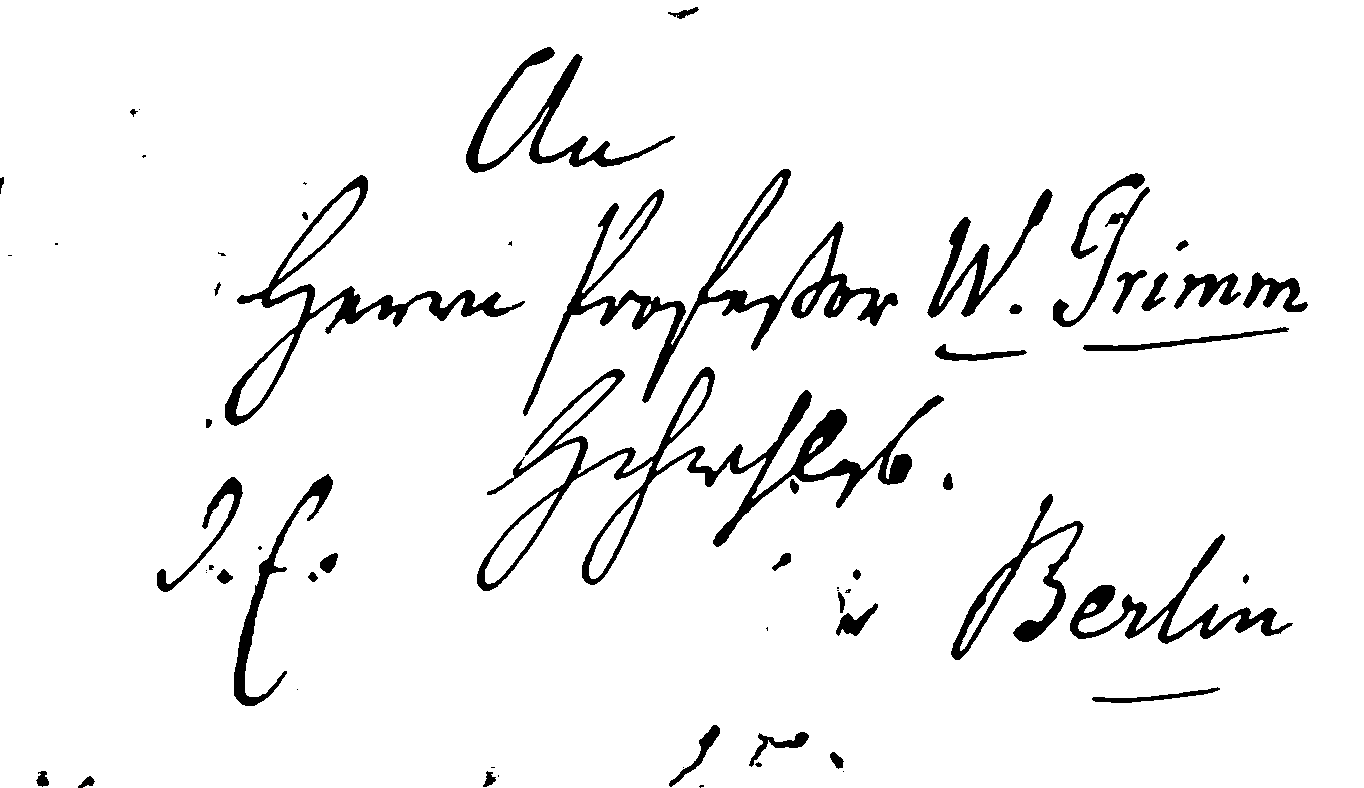 An
Herrn Professor W. Grimm
Hochwohlgeb.
in Berlin